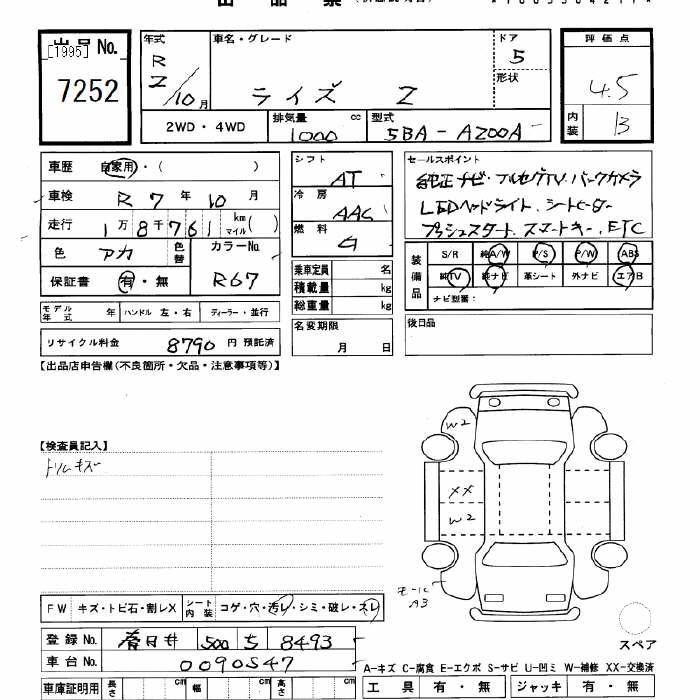 出品票
[1995]
出品 No.
7252
年式
R
2/10月
車名・グレード
ライズ Z
ドア
5
形状
評価点
4.5
内装
B
2WD・4WD
排気量 cc
1000
型式
5BA-A200A
車歴 自家用・( )
車検 R 7年 10月
走行 1万8千761 km マイル( )
色 アカ
色替
カラーNo.
R67
保証書 有・無
モデル年式 年
ハンドル 左・右
ディーラー・並行
リサイクル料金 8790 円 預託済
シフト
AT
冷房
AAC
燃料
乗車定員 名
積載量 kg
総重量 kg
名変期限
月 日
セールスポイント
純正ナビ・フルセグTV・バックカメラ
LEDヘッドライト、シートヒーター
プッシュスタート、スマートキー、ETC
装備品
S/R 純A/W P/S P/W ABS
純TV 純ナビ 革シート 外ナビ エアB
ナビ型番:
後日品
【出品店申告欄(不良箇所・欠品・注意事項等)】
【検査員記入】
W2
XX
W2
A3
FW キズ・トビ石・割レX
シート内装 コゲ・穴・汚レ・シミ・破レ・スレ
登録No. 春日井 500 8493
車台No. 0090547
車庫証明用 長さ cm 幅 cm 高さ cm
スペア
A-キズ C-腐食 E-エクボ S-サビ U-凹ミ W-補修 XX-交換済
工具 有・無 ジャッキ 有・無